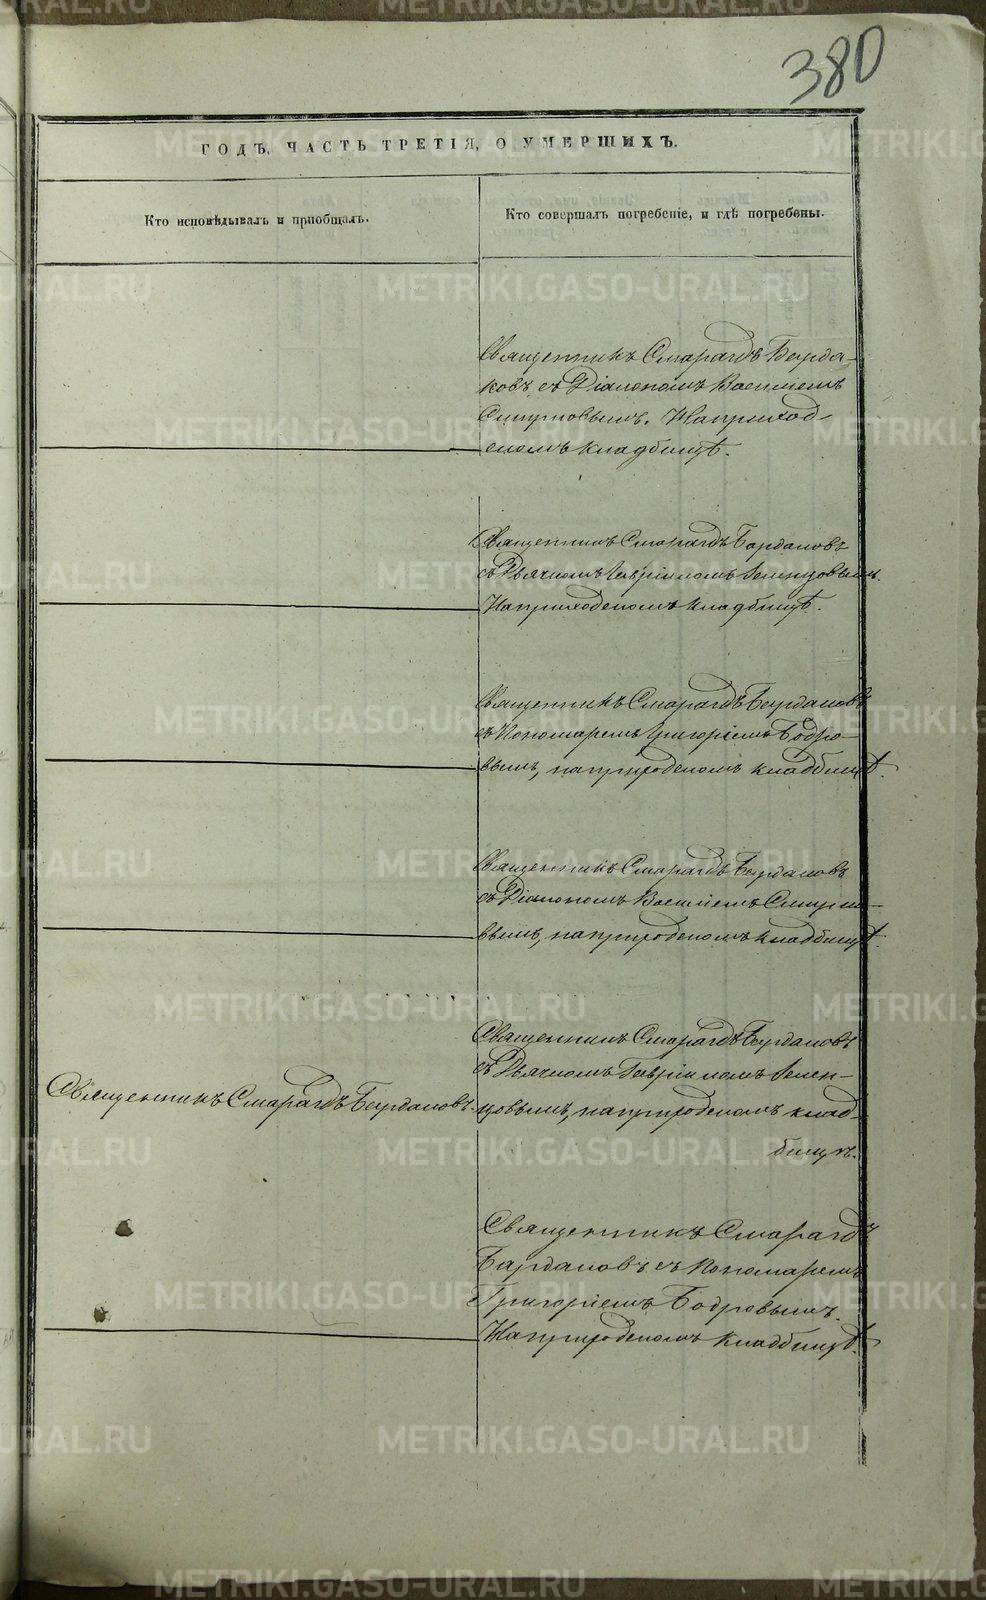 380
ГОДЪ, ЧАСТЬ ТРЕТІЯ, О УМЕРШИХЪ.
Кто исповѣдывалъ и пріобщалъ.
Кто совершалъ погребеніе, и гдѣ погребены.
Священникъ Смарагдъ Бурда-
ковъ съ Діакономъ Василіемъ
Смирновымъ. На приход-
скомъ кладбищѣ.
Священникъ Смарагдъ Бурдаковъ
съ Дьячкомъ Гавріиломъ Зеленцовымъ.
На приходскомъ кладбищѣ.
Священникъ Смарагдъ Бурдаковъ
съ Пономаремъ Григоріемъ Бодро-
вымъ, на приходскомъ кладбищѣ.
Священникъ Смарагдъ Бурдаковъ
съ Діакономъ Василіемъ Смирно-
вымъ, на приходскомъ кладбищѣ.
Священникъ Смарагдъ Бурдаковъ.
Священникъ Смарагдъ Бурдаковъ
съ Дьячкомъ Гавріиломъ Зелен-
цовымъ, на приходскомъ клад-
бищѣ.
Священникъ Смарагдъ
Бурдаковъ съ Пономаремъ
Григоріемъ Бодровымъ.
На приходскомъ кладбищѣ.
METRIKI.GASO-URAL.RU